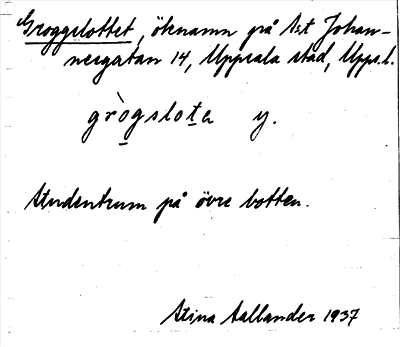 Groggslottet, öknamn på S:t Johan-
nesgatan 14, Uppsala stad, Upps.l.
grògslota y.
Studentrum på övre botten.
Stina Aallander 1937